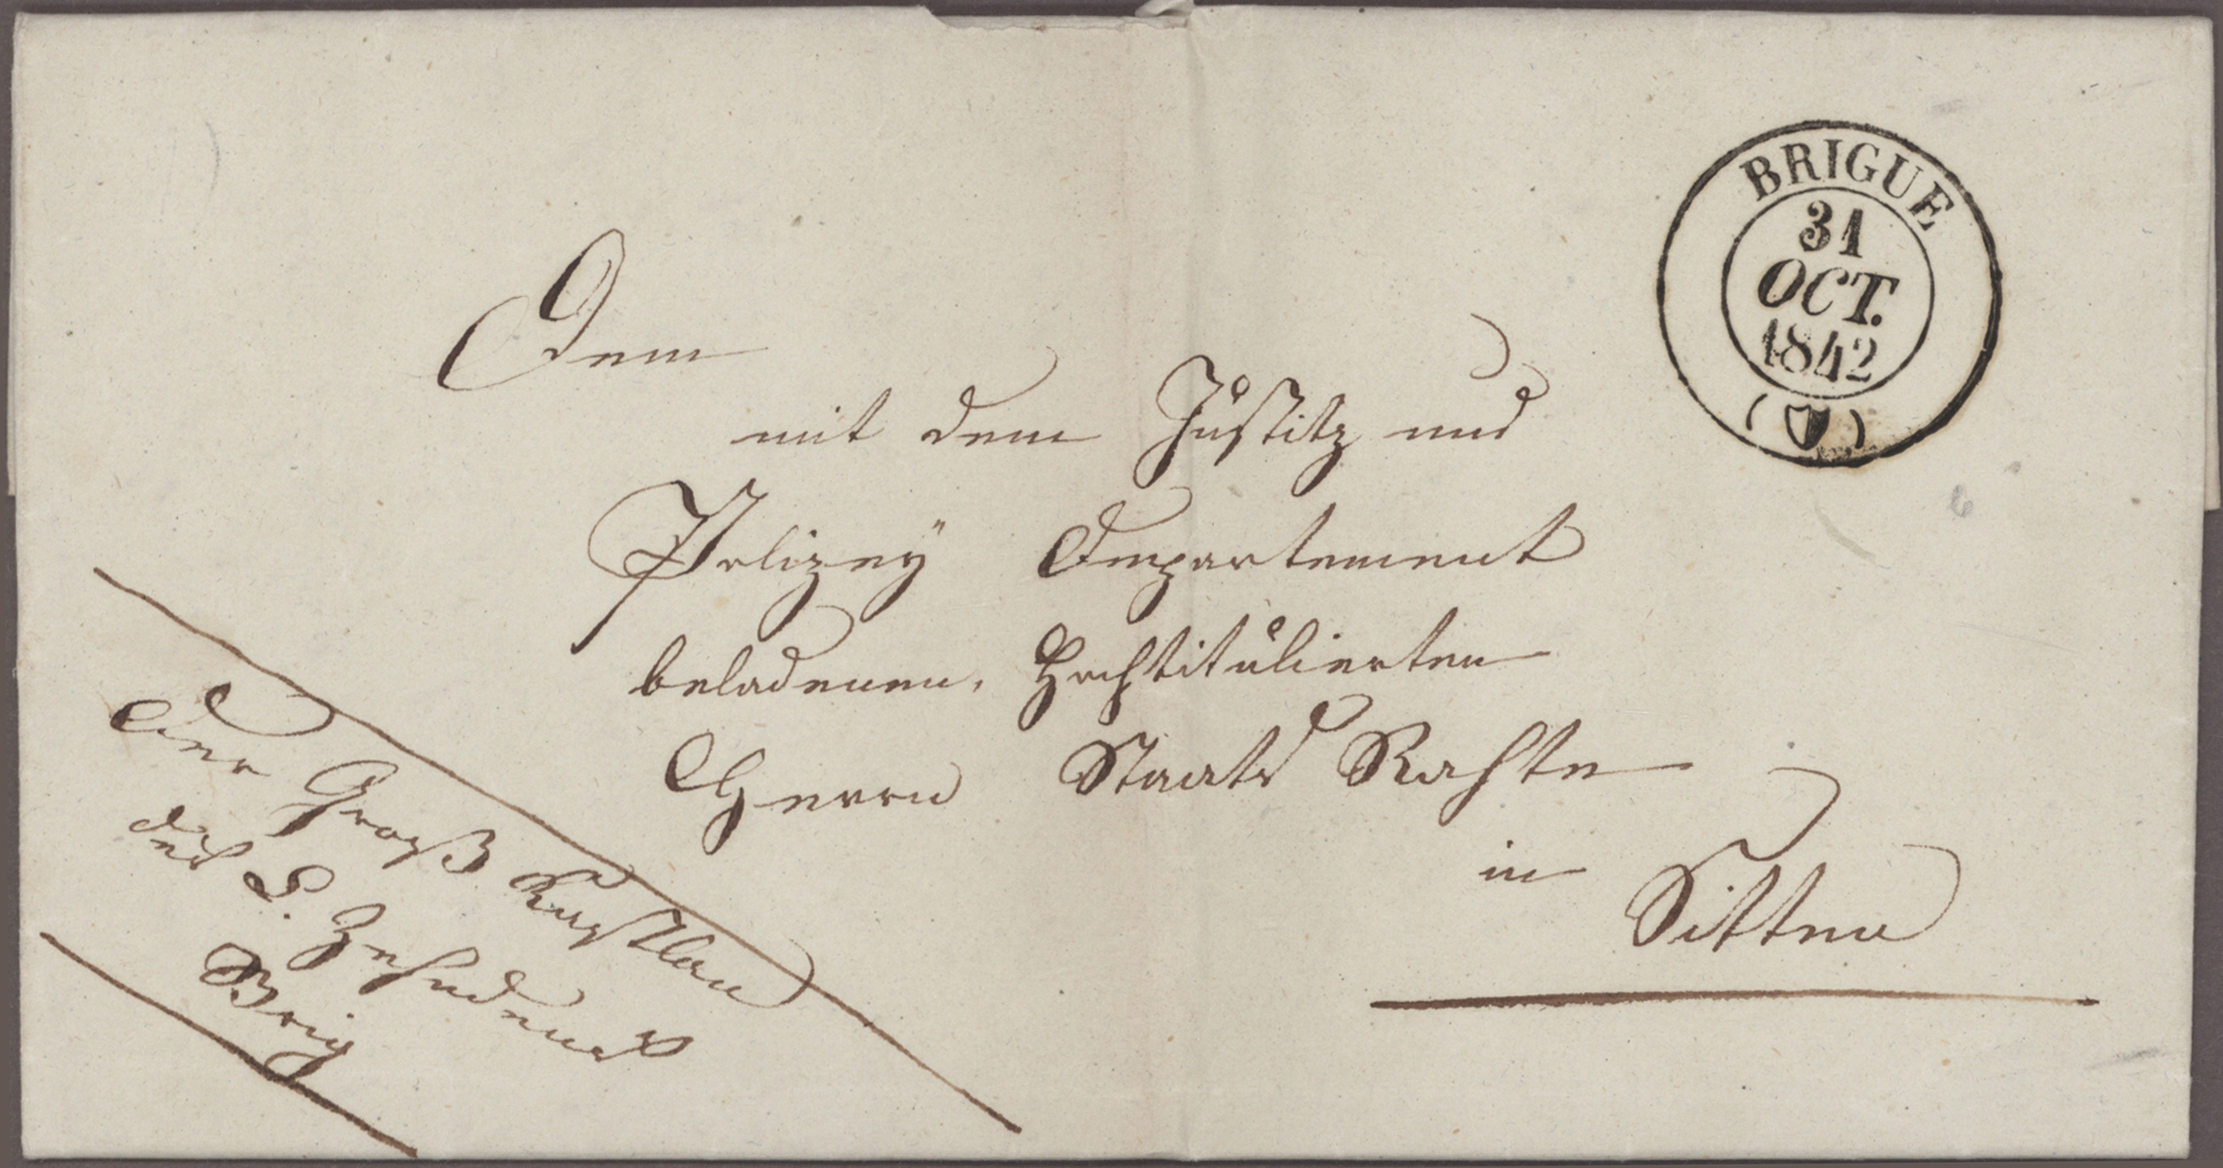 BRIGUE
31
OCT.
1842
Dem
mit dem Justitz und
Polizeÿ Departement
beladenen, Hochtitulierten
Herrn Staats Rahte
in Sitten
Der Groß Kastlan
des L. Zehndens
Brig